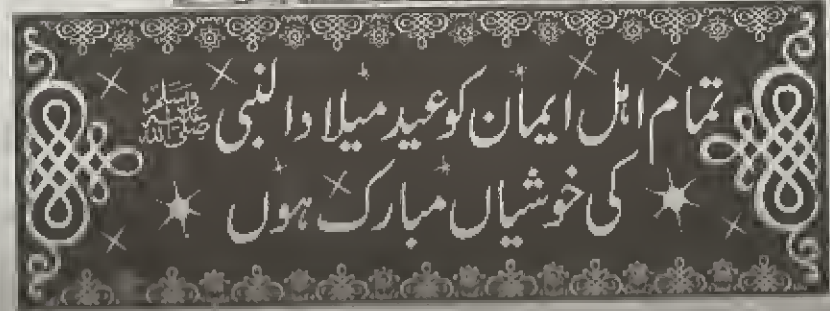 تمام اہل ایمان کو عید میلاد النبی ﷺ
کی خوشیاں مبارک ہوں